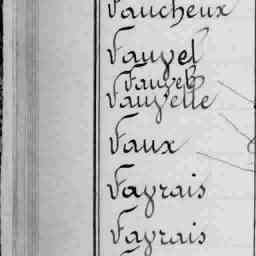 Faucheux
Fauvel
Fauvel
Fauvelle
Faux
Fayrais
Fayrais